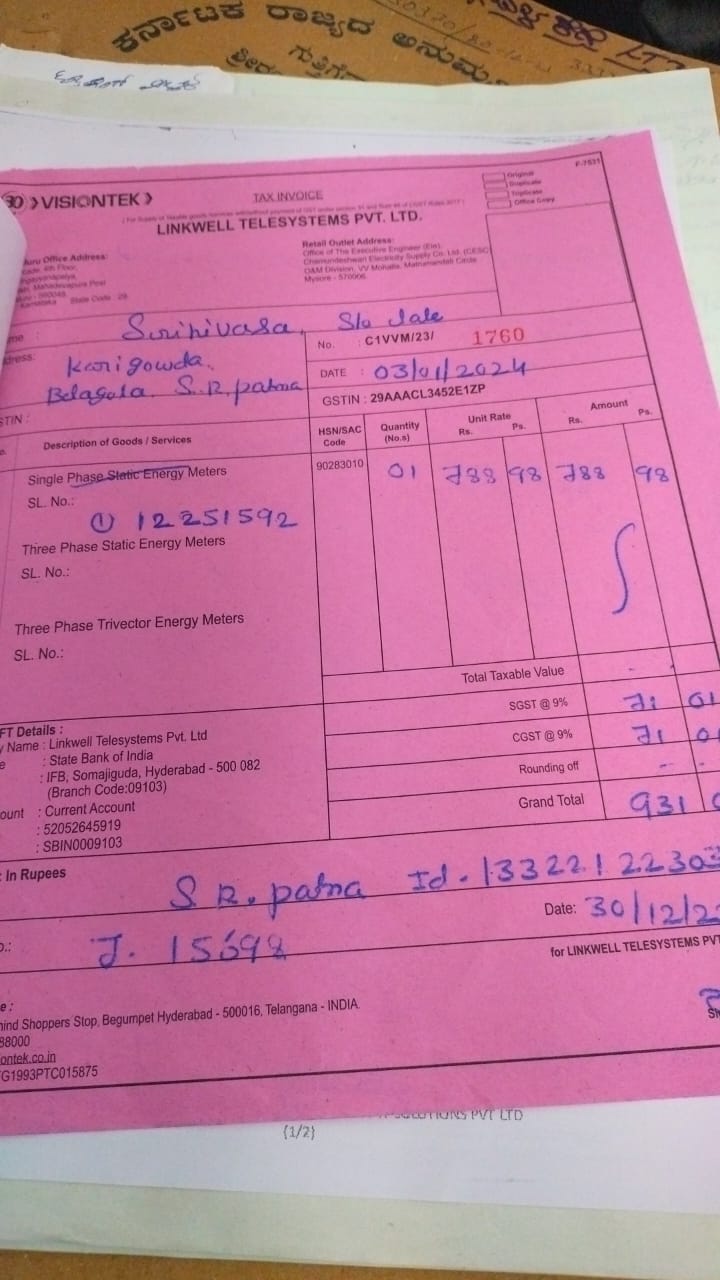 ಕರ್ನಾಟಕ ರಾಜ್ಯದ
F-7531
VISIONTEK
TAX INVOICE
Original
Duplicate
Triplicate
Office Copy
LINKWELL TELESYSTEMS PVT. LTD.
Office Address:
4th Floor,
Mahadevapura Post
560048
State Code : 29
Retail Outlet Address:
Office of The Executive Engineer (Ele),
Chamundeshwari Electricity Supply Co. Ltd. (CESC)
O&M Division, VV Mohalla, Mathrumandali Circle
Mysore - 570006.
Srinivasa, S/o late
Karigowda.
Belagola. S.R.patna
No. : C1VVM/23/ 1760
DATE : 03/01/2024
GSTIN : 29AAACL3452E1ZP
Description of Goods / Services
HSN/SAC Code
Quantity (No.s)
Unit Rate
Rs. Ps.
Amount
Rs. Ps.
Single Phase Static Energy Meters
90283010 01 788 98 788 98
SL. No.:
① 12251592
Three Phase Static Energy Meters
SL. No.:
Three Phase Trivector Energy Meters
SL. No.:
Total Taxable Value
SGST @ 9% 71 01
CGST @ 9% 71 01
Rounding off
Grand Total 931
FT Details :
Name : Linkwell Telesystems Pvt. Ltd
: State Bank of India
: IFB, Somajiguda, Hyderabad - 500 082
(Branch Code:09103)
: Current Account
: 52052645919
: SBIN0009103
In Rupees
S R. patna Id. 13322122303
Date: 30/12/2
J. 15698
for LINKWELL TELESYSTEMS PVT
Shoppers Stop, Begumpet Hyderabad - 500016, Telangana - INDIA.
88000
ontek.co.in
G1993PTC015875
PVT LTD
{1/2}